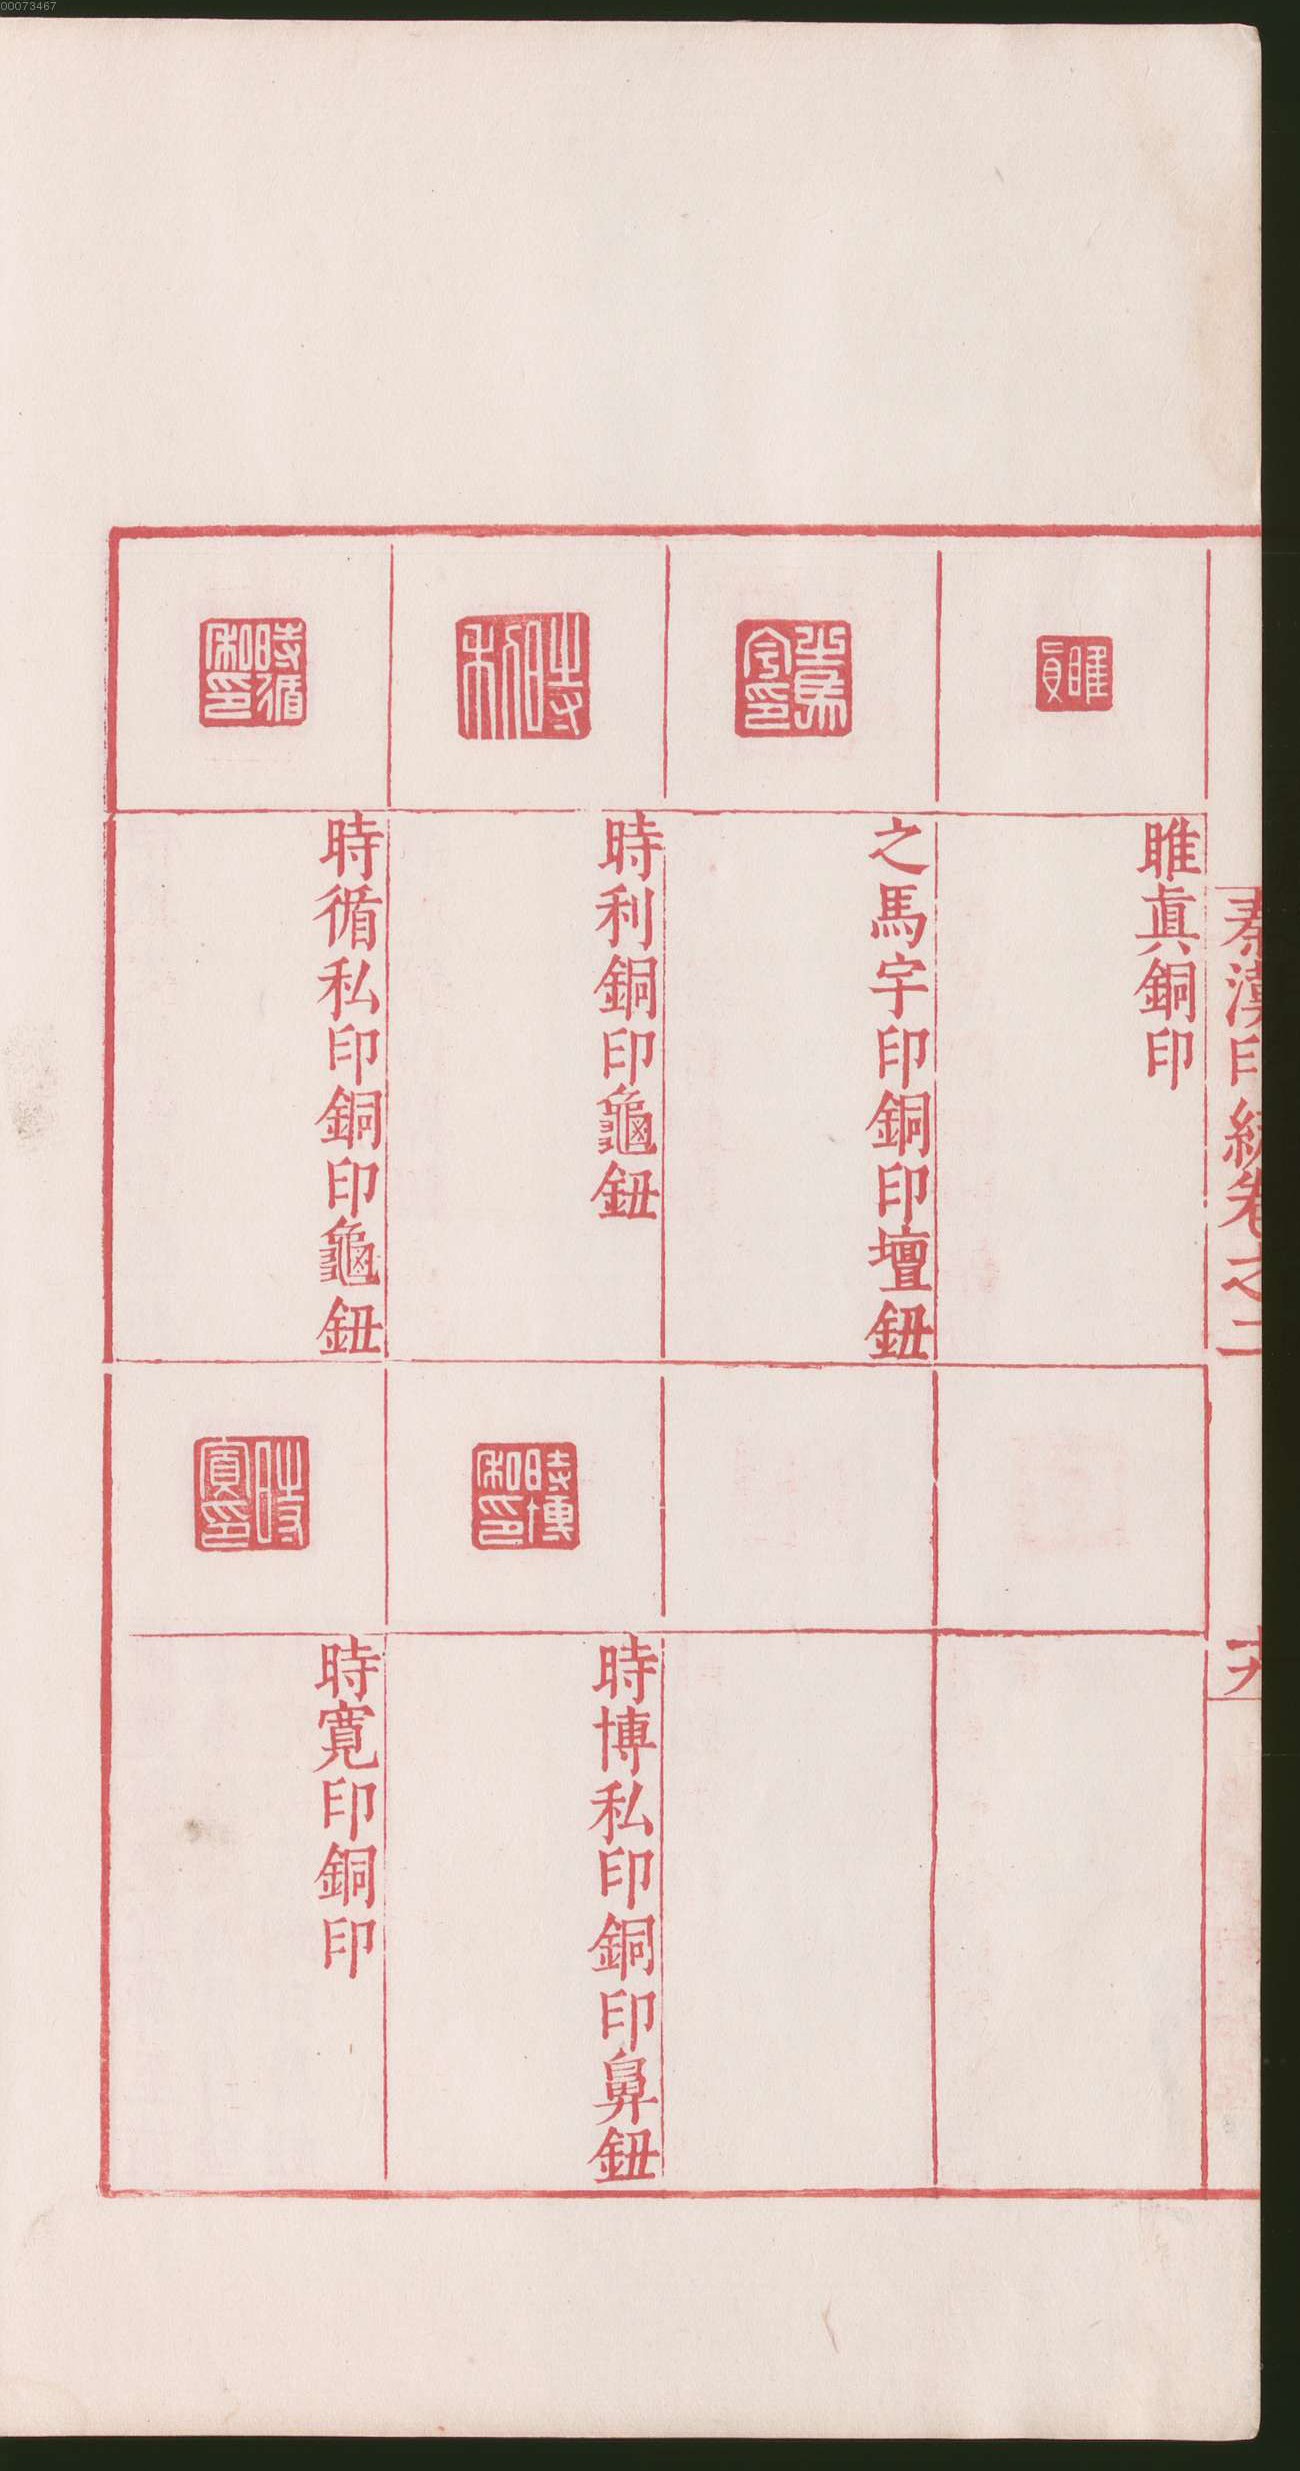 00073467
秦漢印統卷之二
六
睢真銅印
之馬㝉印銅印壇鈕
時利銅印龜鈕
時循私印銅印龜鈕
時博私印銅印鼻鈕
時寬印銅印